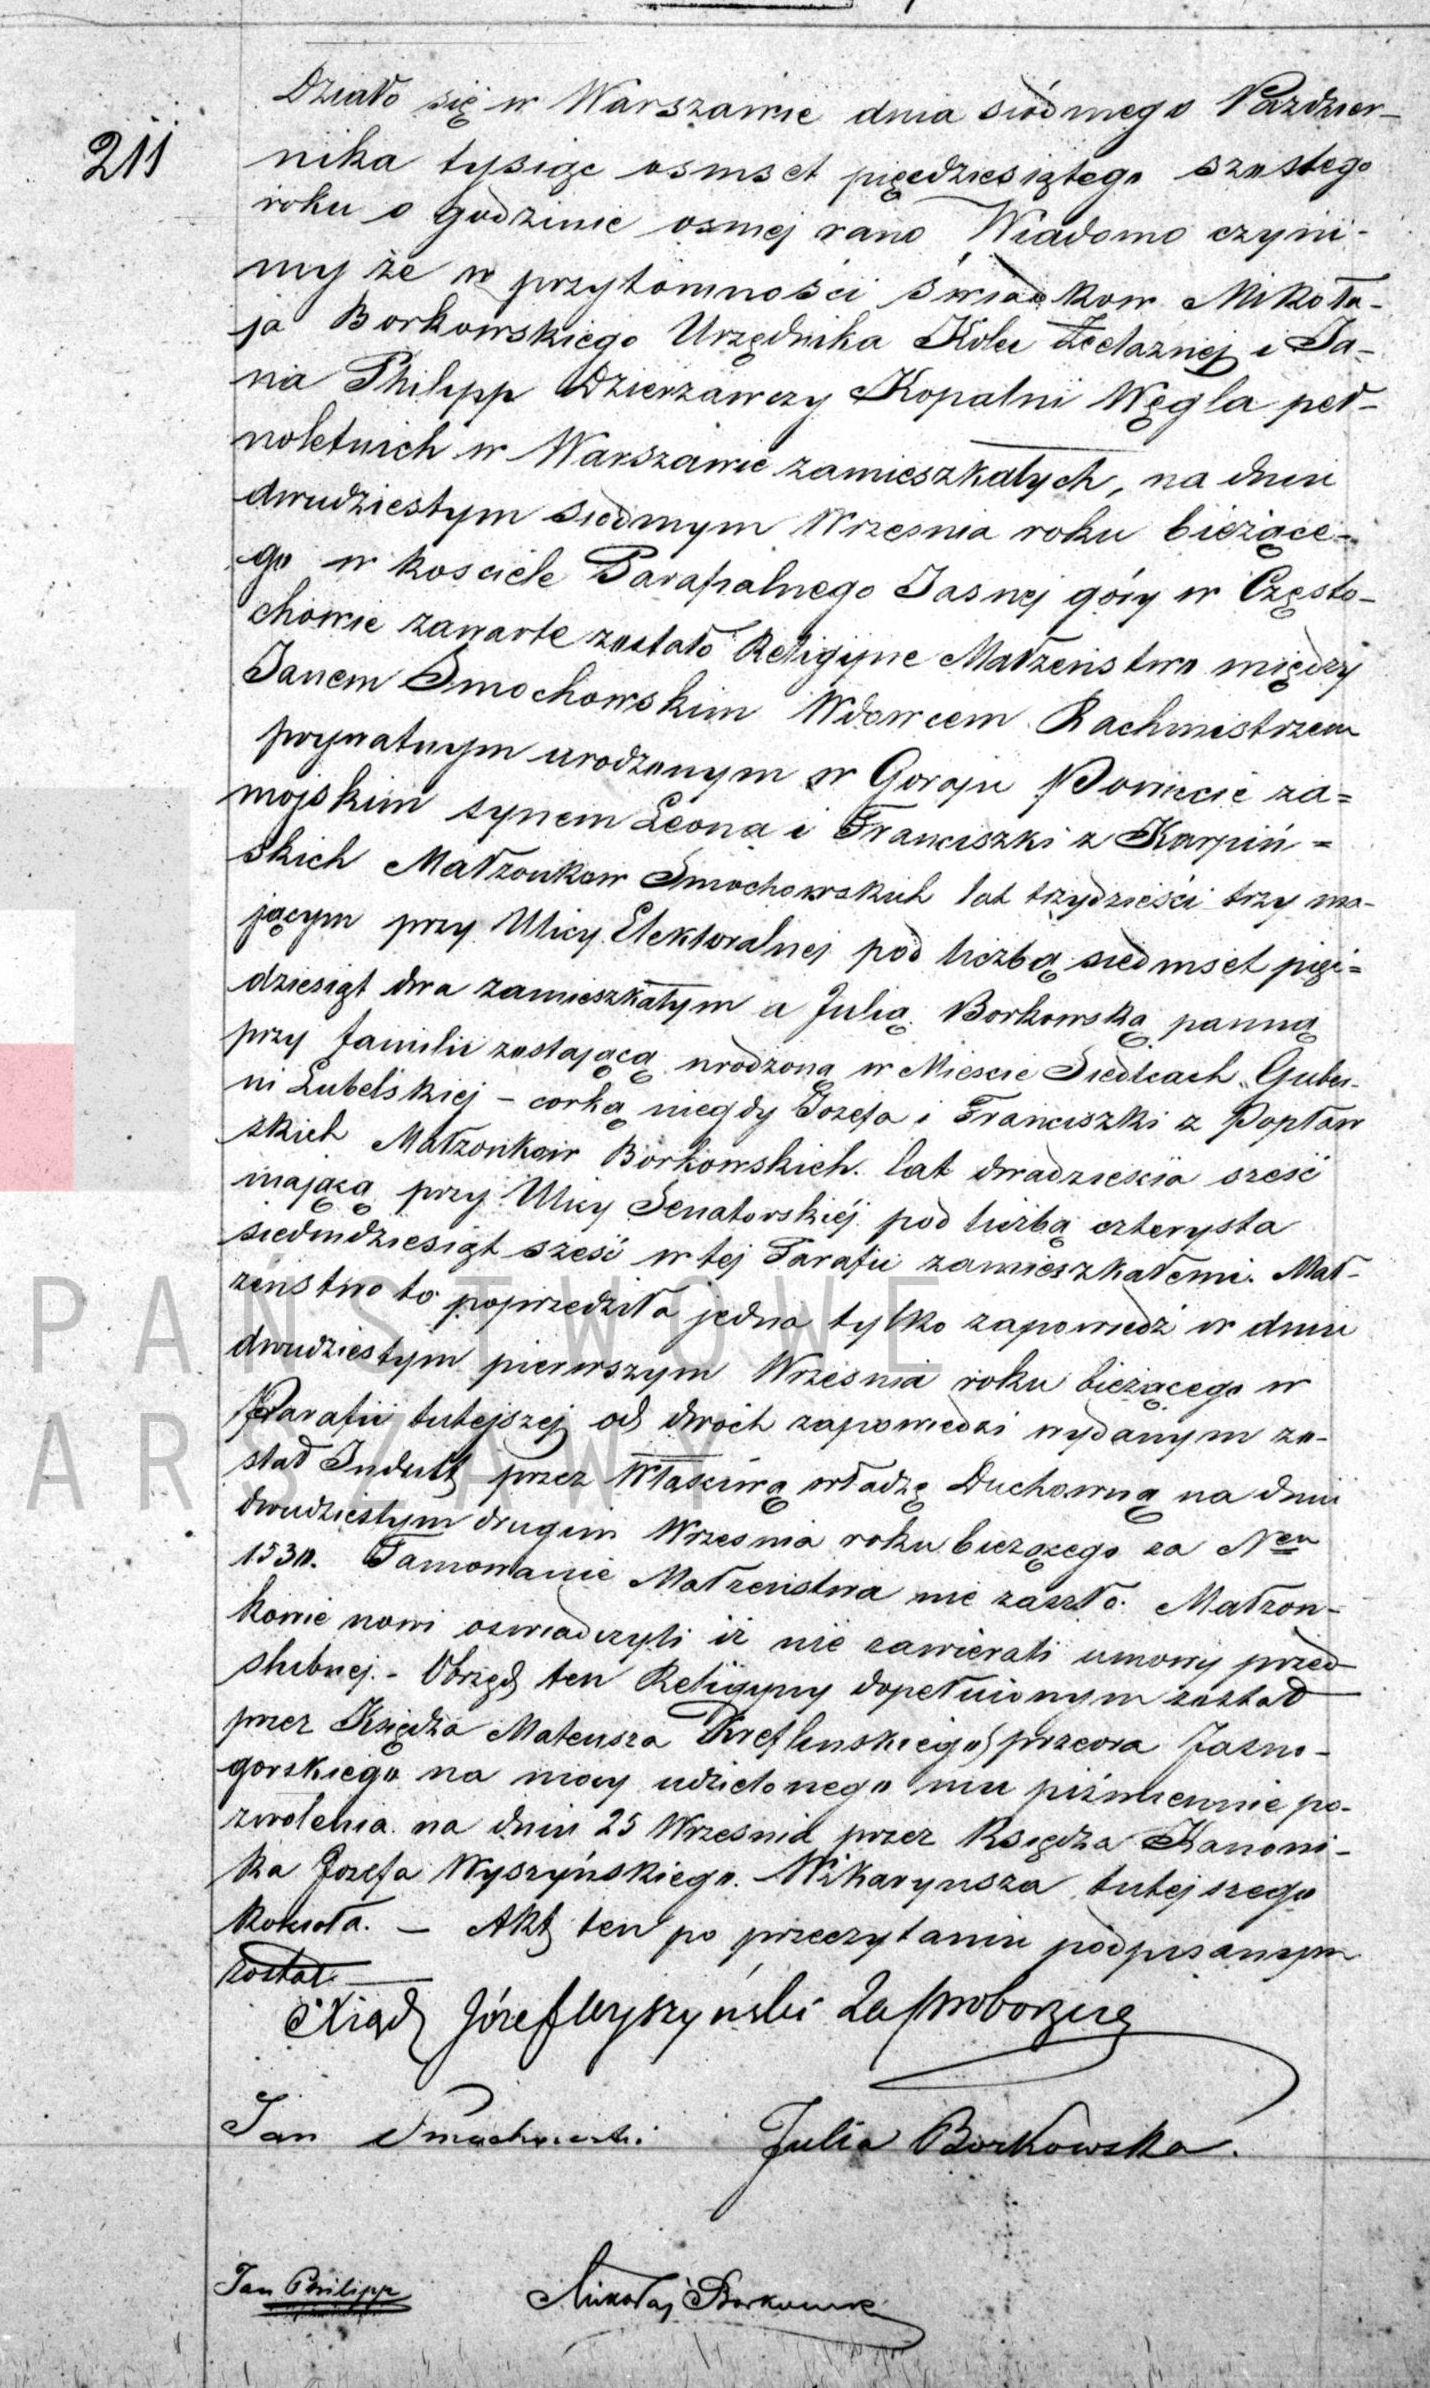 211
Działo się w Warszawie dnia siódmego Paździer-
nika tysiąc osmset pięcdziesiątego szostego
roku o godzinie osmej rano Wiadomo czyni-
my że w przytomności świadkow Mikoła-
ja Borkowskiego Urzędnika Kolei Żelaznej i Ja-
na Philipp Dzierzawczy Kopalni Węgla peł-
noletnich w Warszawie zamieszkałych, na dniu
dwudziestym siodmym Wrzesnia roku bieżące-
go w kosciele Parafialnego Jasnej góry w Często-
chowie zawarte zostało Religijne Małżeństwo między
Janem Smochowskim Wdowcem Rachmistrzem
prywatnym urodzonym w Goraju Powiecie za=
mojskim synem Leona i Franciszki z Karpiń=
skich Małżonkow Smochowskich lat trzydzieści trzy ma-
jącym przy Ulicy Elektoralnej pod liczbą siedmset pięć=
dziesiąt dwa zamieszkałym a Julią Borkowską panną
przy familii zostającą urodzoną w Miescie Siedlcach Guber-
ni Lubelskiej - corką niegdy Jozefa i Franciszki z Popław
skich Małżonkow Borkowskich. lat dwadziescia sześć
mającą przy Ulicy Senatorskiéj pod liczbą czterysta
siedmdziesiąt sześć w tej Parafii zamieszkałemi. Mał-
żeństwo to poprzedziła jedna tylko zapowiedź w dniu
dwudziestym pierwszym Wrzesnia roku bieżącego w
Parafii tutejszej od dwóch zapowiedzi wydanym zo-
stał Indult przez Własciwą władzę Duchowną na dniu
dwudziestym drugim Wrzesnia roku bieżącego za Nem
1530. Tamowanie Małżeństwa nie zaszło. Małżon-
kowie nowi oswiadczyli iż nie zawierali umowy przed
slubnej. - Obrzęd ten Religijny dopełnionym został
przez Księdza Mateusza przeora Jasno-
gorskiego na mocy udzielonego mu piśmiennie po-
zwolenia na dniu 25 Wrzesnia przez Księdza Kanoni-
ka Jozefa Wyszyńskiego. Wikaryusza tutejszego
Kosciola. - Akt ten po przeczytaniu podpisanym
został
Xiądz Józef Wyszyński Za Proboszcza
Jan Smochowski Julia Borkowska.
Jan Philipp Mikołaj Borkowski
PAŃSTWOWE
ARSZAWY